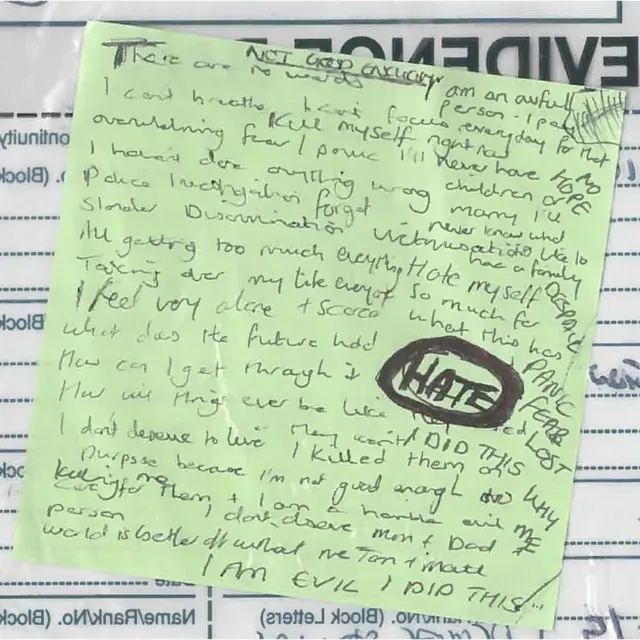 EVIDENCE
There are no words
NOT GOOD ENOUGH
I am an awful person. I pay everyday for that
I cant breathe I cant focus
Kill myself right now
overwhelming fear / panic I'll never have NO HOPE
I haven't done anything wrong
children or marry I'll
Police Investigation forget never know what
Slander Discrimination Victimisation its like to have a family
All getting too much everything Hate myself DESPAIR
Taking over my life everyday so much for what this has
I feel very alone + scared
what does the future hold PANIC
How can I get through it HATE FEAR
How will things ever be like LOST
they I DID THIS
I don't deserve to live I killed them on WHY
purpose because I'm not good enough to ME
care for them + I am a horrible evil
person I don't deserve mum + Dad
killing me
world is better off without me
I AM EVIL I DID THIS
ontinuity
o. (Block
Block
Date
Name/Rank/No. (Block
(Block Letters)